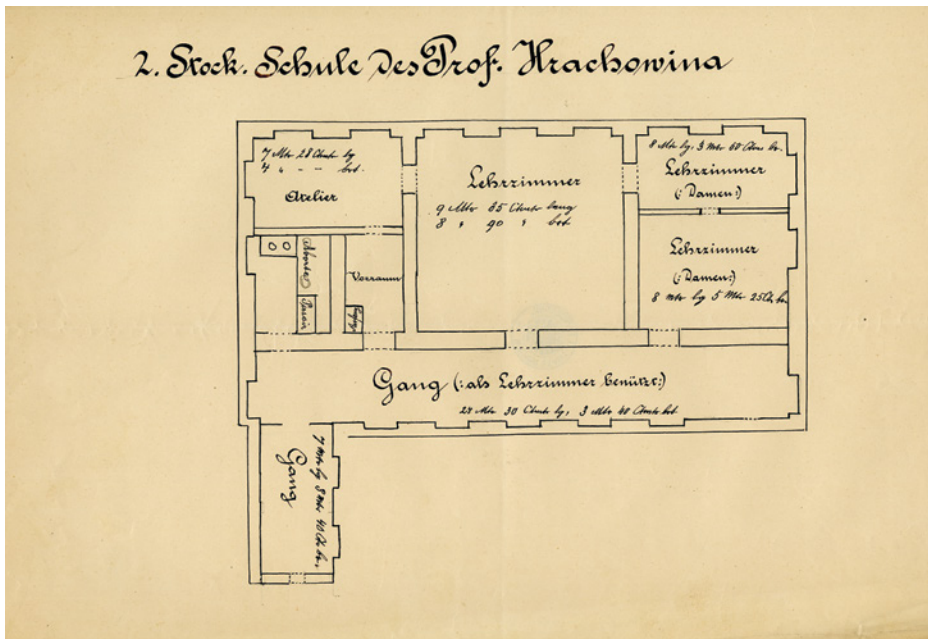 2. Stock. Schule des Prof. Hrachowina
7 Mtr 28 Ctmtr lg
4 " - - brt.
Atelier
Lehrzimmer
9 Mtr 35 Ctmtr lang
8 " 90 " brt
8 Mtr lg, 3 Mtr 60 Ctmtr br.
Lehrzimmer
(: Damen :)
Lehrzimmer
(: Damen :)
8 mtr lg 5 Mtr 25 Ctr br.
Aborte
Pissoir
Vorraum
Gang (: als Lehrzimmer benützt :)
30 Ctmtr lg, 3 Mtr 40 Ctmtr brt.
Gang
7 Mtr lg 3 Mtr 40 Ctr br.